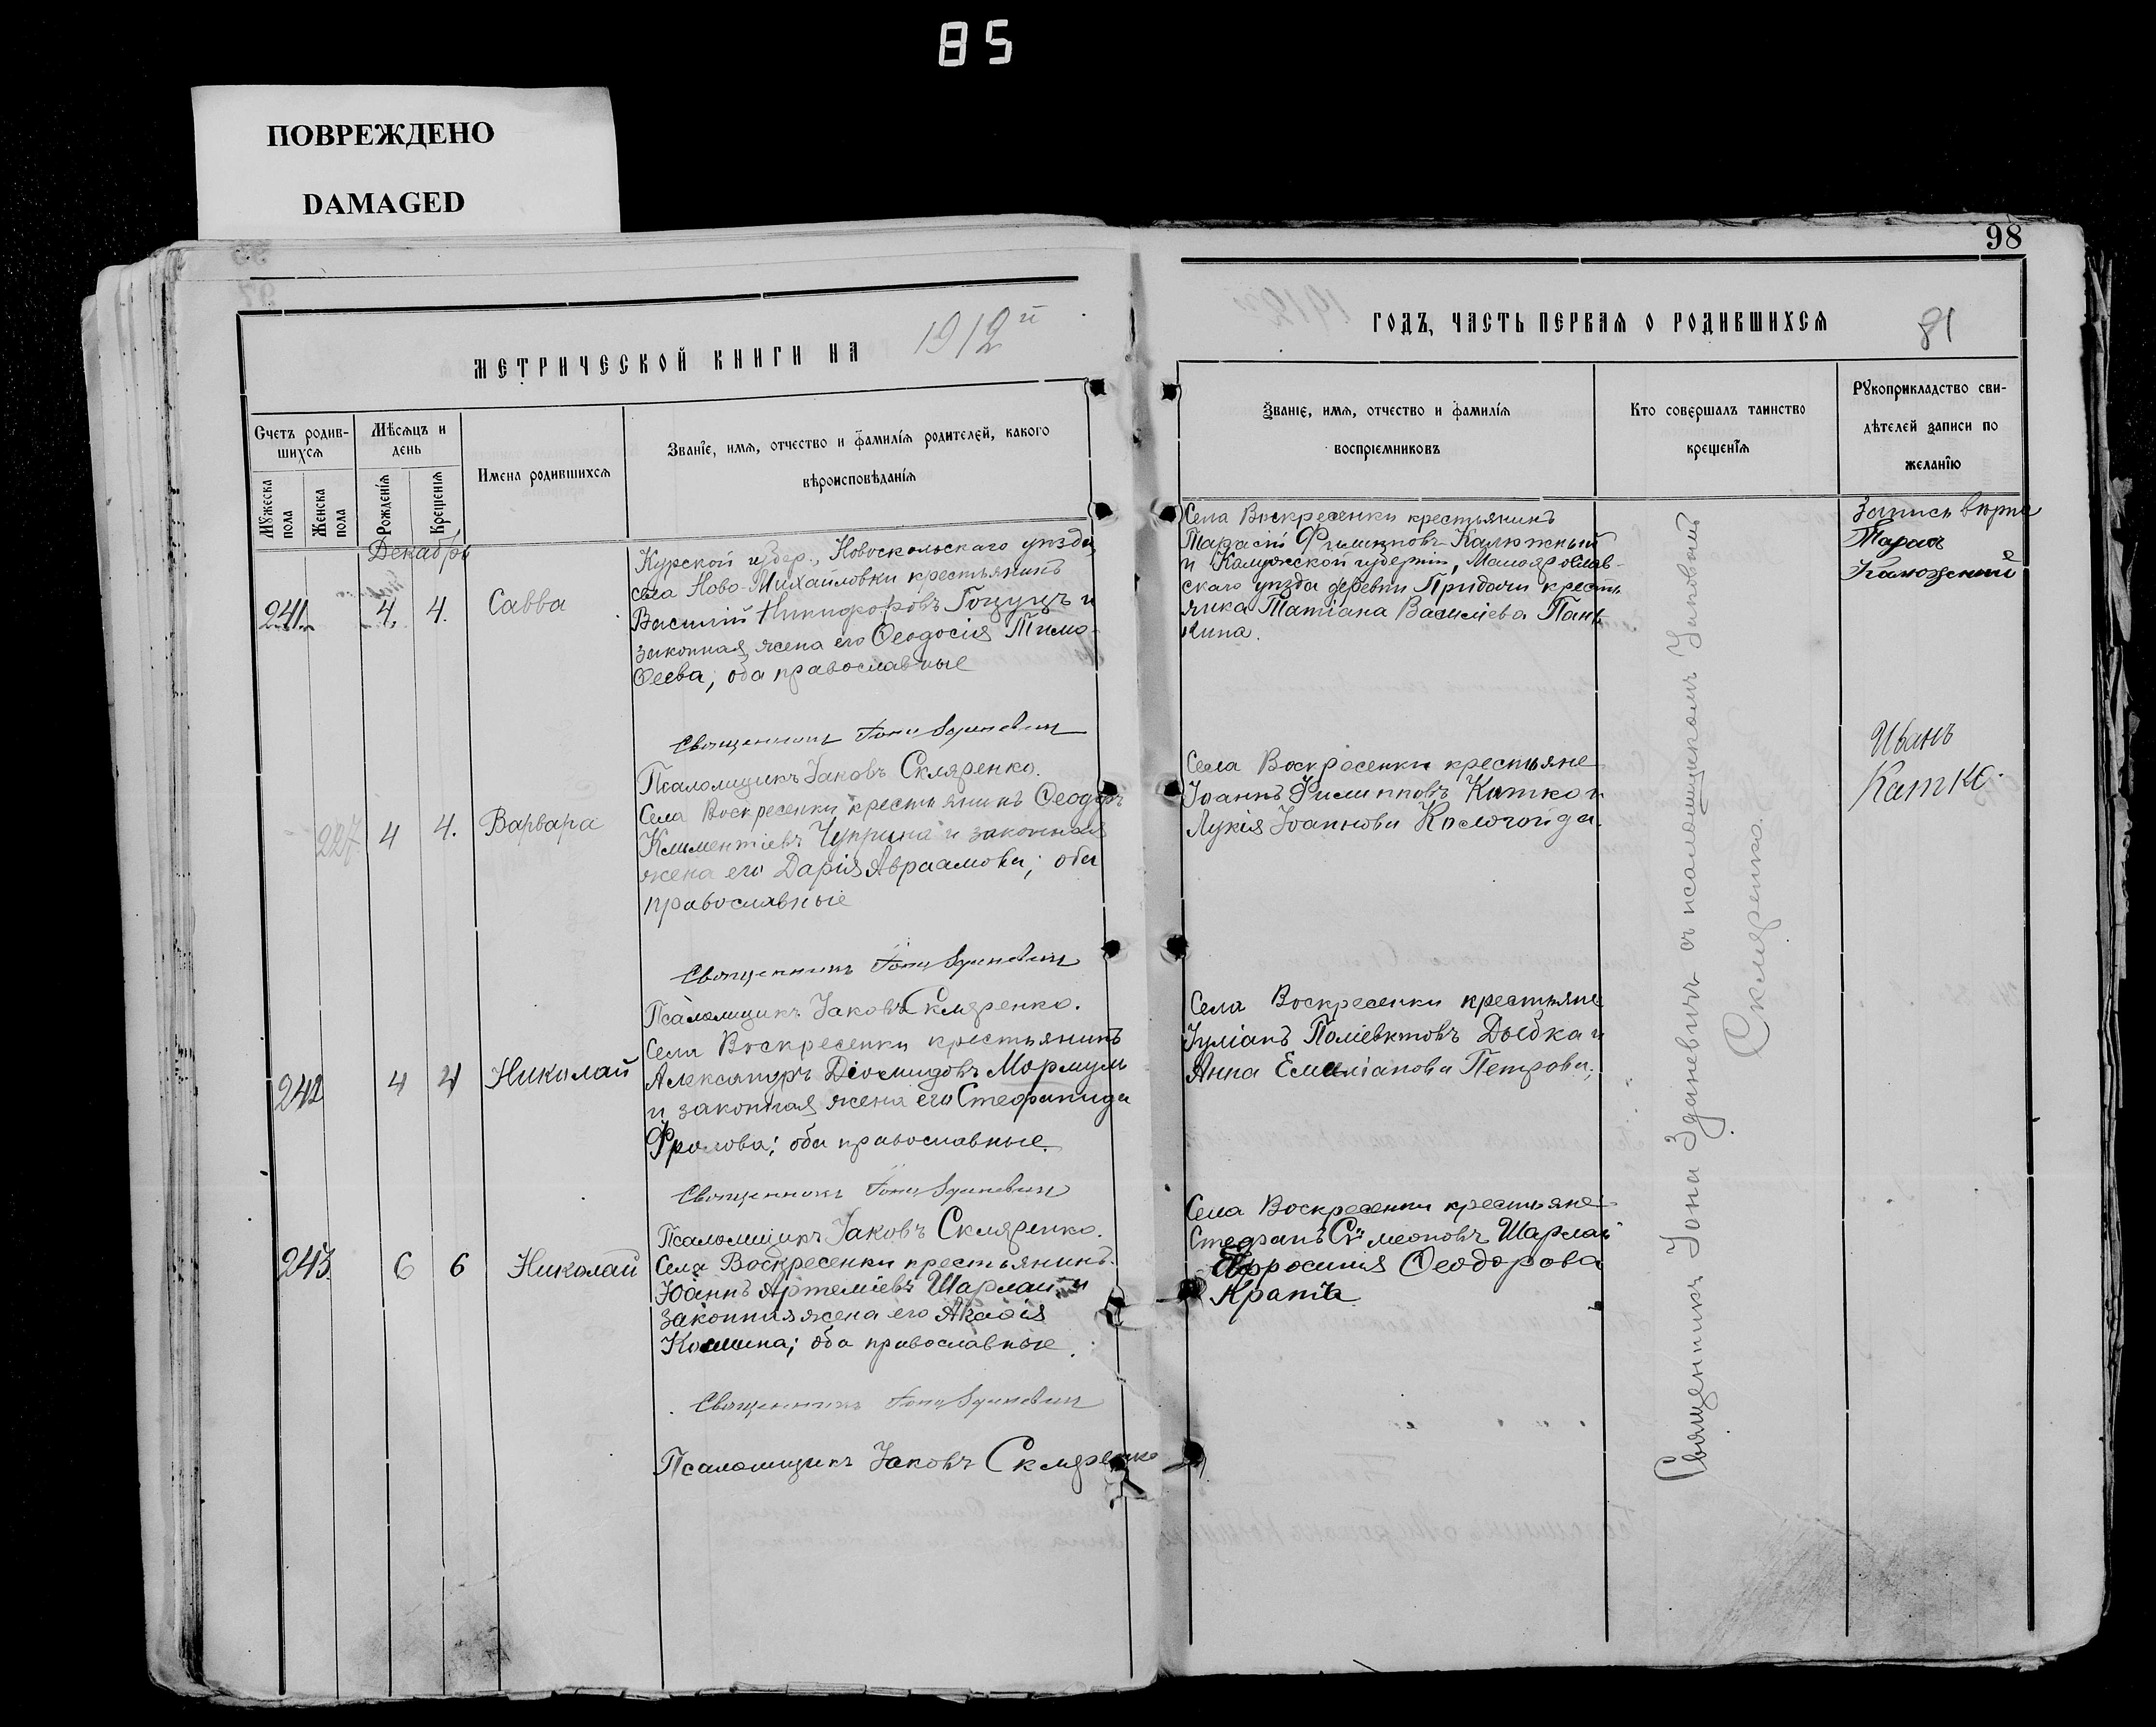 85
ПОВРЕЖДЕНО
DAMAGED
98
МЕТРИЧЕСКОЙ КНИГИ НА 1912й
ГОДЪ, ЧАСТЬ ПЕРВАЯ О РОДИВШИХСЯ
81
Счетъ родив-
шихся
Мужеска пола
Женска пола
Мѣсяцъ и
день
Рожденія
Крещенія
Имена родившихся
Званіе, имя, отчество и фамилія родителей, какого
вѣроисповѣданія
Званіе, имя, отчество и фамилія
воспріемниковъ
Кто совершалъ таинство
крещенія
Рукоприкладство сви-
дѣтелей записи по
желанію
Декабрь
241. 4. 4. Савва
Курской губер., Новооскольскаго уѣзда,
села Ново-Михайловки крестьянинъ
Василій Никифоровъ и
законная жена его Ѳеодосія Тимо-
ѳеева; оба православные
Священникъ Іона Зданевичъ
Псаломщикъ Іаковъ Скляренко.
Села Воскресенки крестьянинъ
Тарасій Филипповъ Калюжный
и Калужской губерніи, Малоярослав-
скаго уѣзда деревни Придачи кресть
янка Татіана Василіева Пань
кина.
Запись вѣрна
Тарас
227. 4 4. Варвара
Села Воскресенки крестьянинъ Ѳеодоръ
Климентіевъ Чуприна и законная
жена его Дарія Авраамова; оба
православные
Священникъ Іона Зданевичъ
Псаломщикъ Іаковъ Скляренко.
Села Воскресенки крестьяне
Іоаннъ Филипповъ Катко и
Лукія Іоаннова
Иванъ
Катко.
242 4 4 Николай
Села Воскресенки крестьянинъ
Александръ Діомидовъ Мормуль
и законная жена его Стефанида
Фролова; оба православные.
Священникъ Іона Зданевичъ
Псаломщикъ Іаковъ Скляренко.
Села Воскресенки крестьяне
Іуліанъ Поліевктовъ Дыбка и
Анна Емиліанова Петрова.
243. 6 6 Николай
Села Воскресенки крестьянинъ
Іоаннъ Артеміевъ Шарлай и
законная жена его Акакія
Космина; оба православные.
Священникъ Іона Зданевичъ
Псаломщикъ Іаковъ Скляренко
Села Воскресенки крестьяне
Стефанъ Симеоновъ Шарлай
Ефросинія Ѳеодорова
Священникъ Іона Зданевичъ съ псаломщикомъ Іаковомъ
Скляренко.